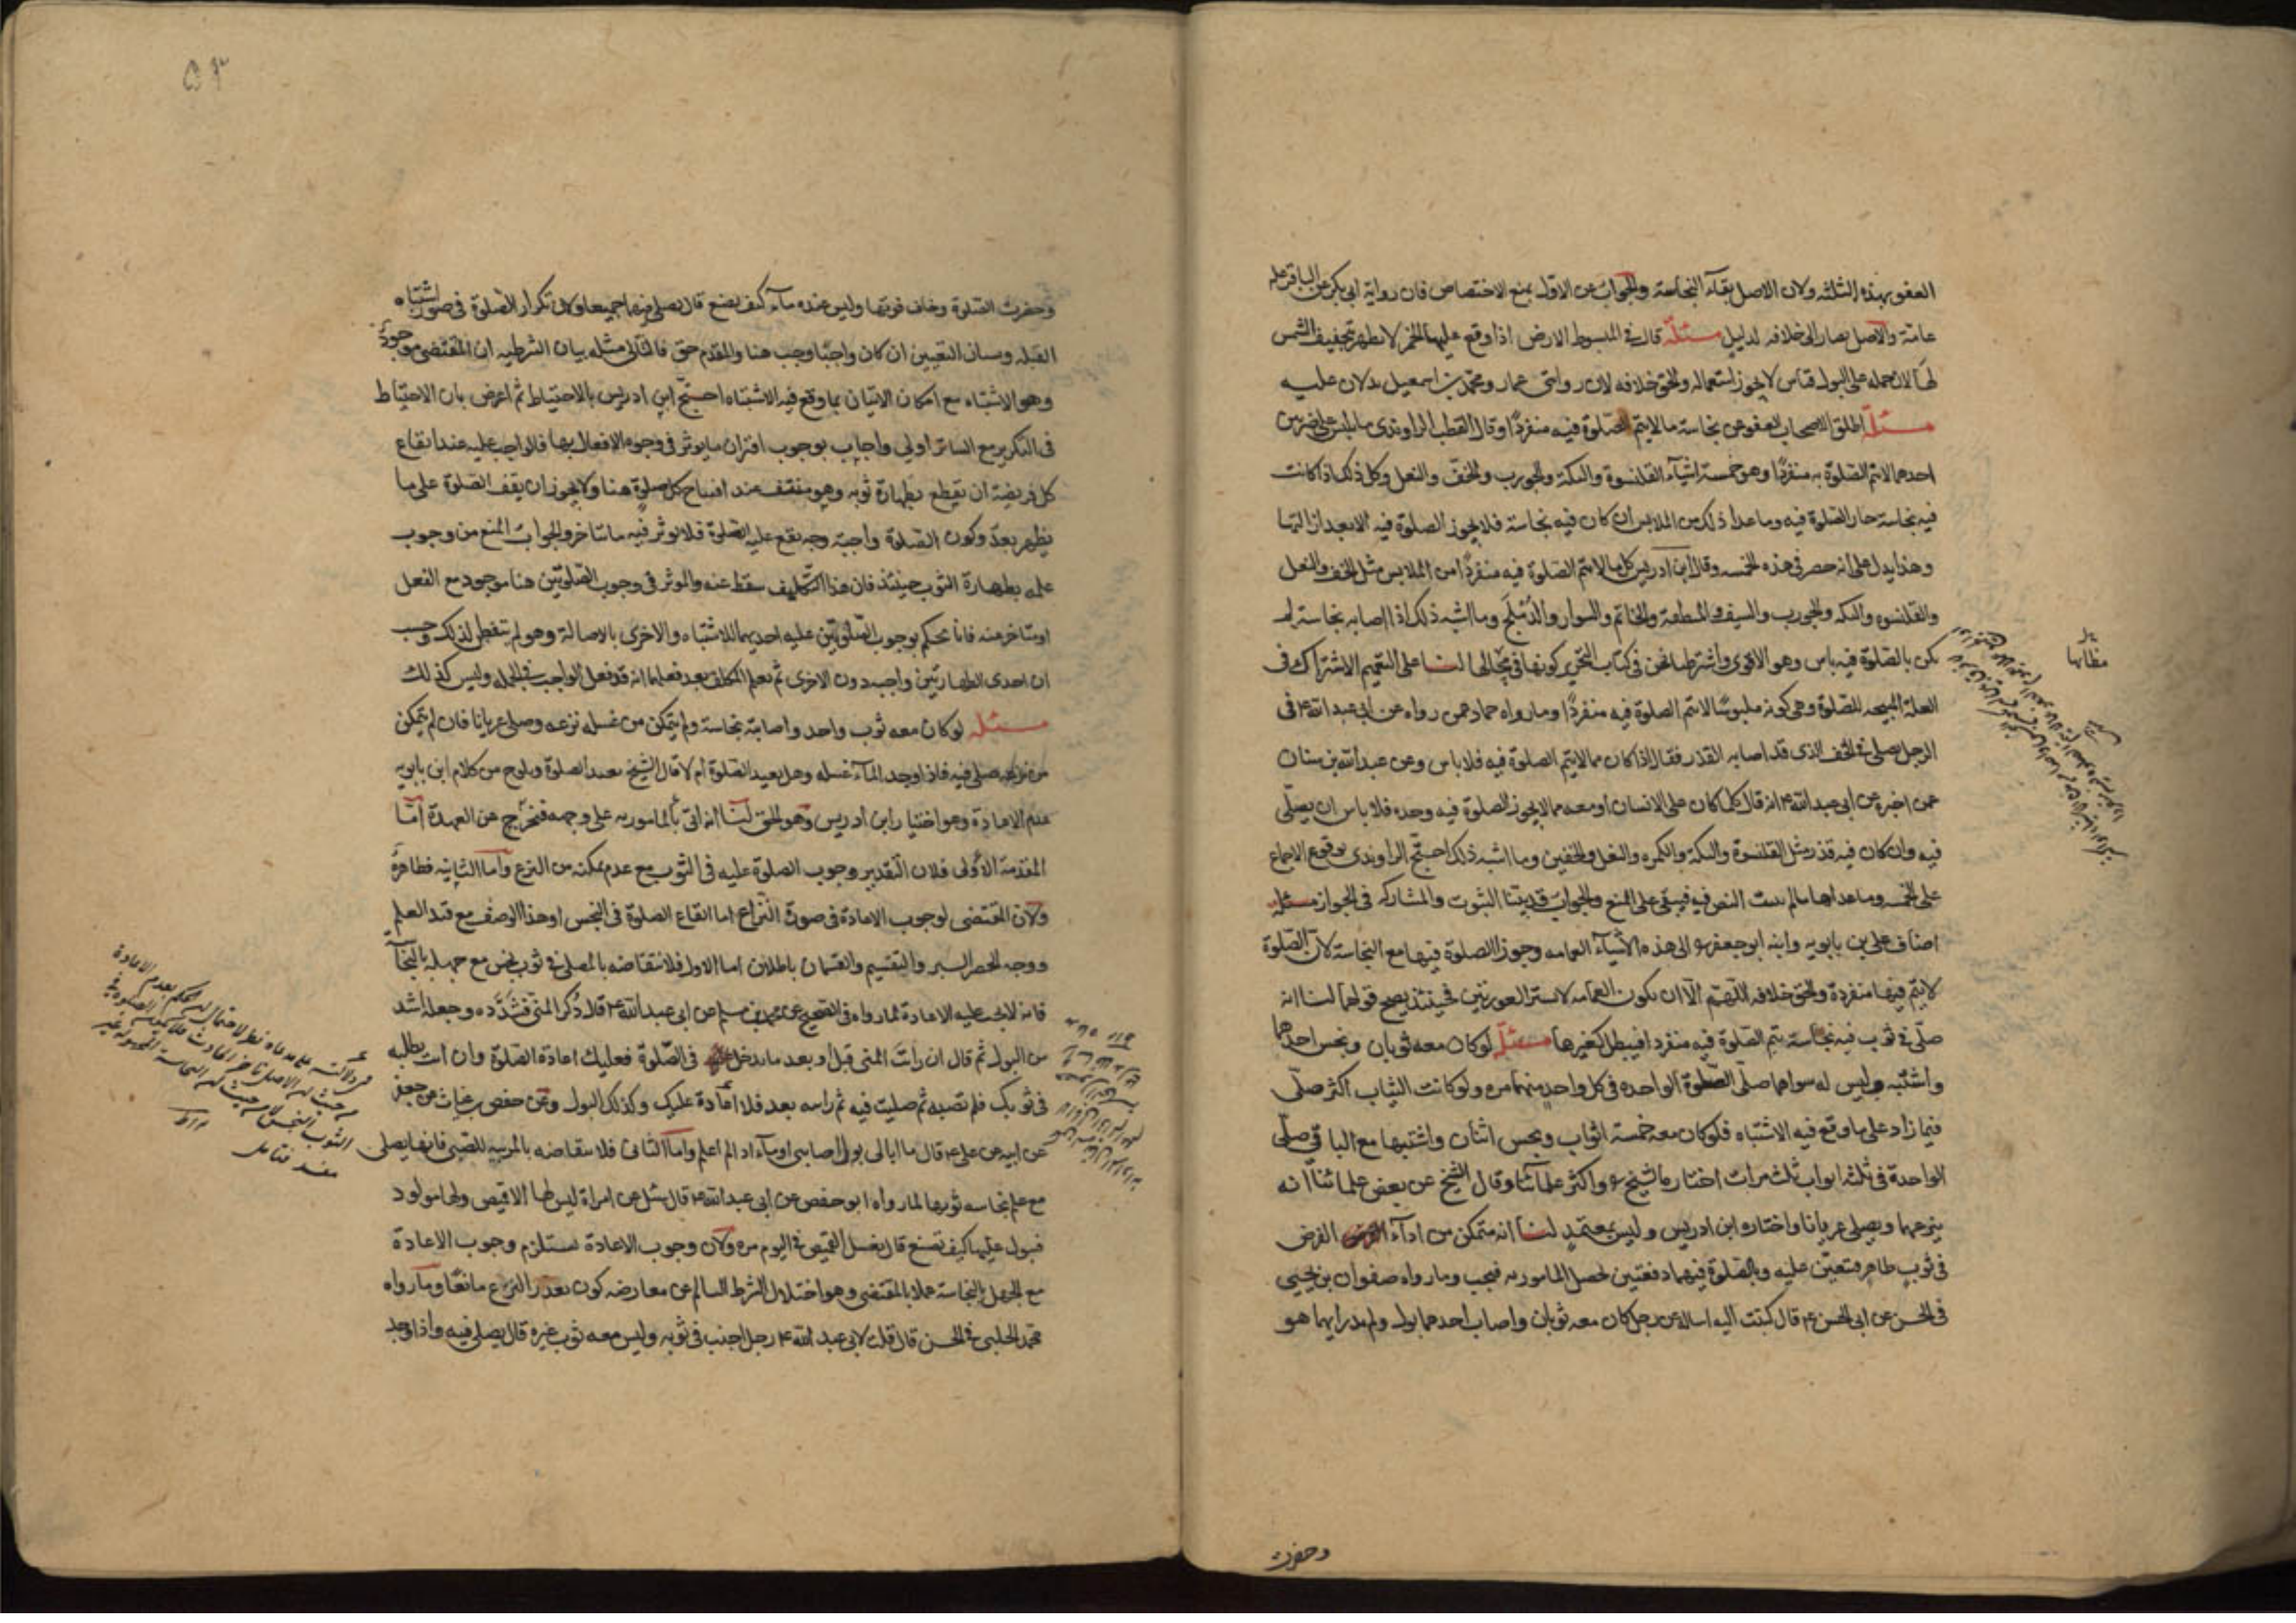 العفو بهذه الثلثة ولان الاصل بقآء النجاسة والجواب عن الاول بمنع الاختصاص فان رواية ابى بكر عن الباقر عليه
عامة والاصل يصار الى خلافه لدليل مسئلة قال في المبسوط الارض اذا وقع عليها الخمر لا تطهر بتجفيف الشمس
لها لان حمله على البول قياس لا يجوز استعماله والحق خلافه لان روايتى عمار ومحمد بن اسمعيل يدلان عليه
مسئلة اطلق الاصحاب العفو عن نجاسة ما لا يتم الصلوة فيه منفردًا وقال القطب الراوندى ما يلبس على ضربين
احدهما لا يتم الصلوة به منفردًا وهو خمسة اشياء القلنسوة والتكة والجورب والخف والنعل وكل ذلك اذا كانت
فيه نجاسة جاز الصلوة فيه وما عدا ذلك من الملابس ان كان فيه نجاسة فلا يجوز الصلوة فيه الا بعد ازالتها
وهذا يدل على انه حصر في هذه الخمسه وقال ابن ادريس كل ما لا يتم الصلوة فيه منفردًا من الملابس مثل الخف والنعل
والقلنسوه والتكه والجورب والسيف والمنطقة والخاتم والسوار والدملج وما اشبه ذلك اذا اصابه نجاسة لم
يكن بالصلوة فيه باس وهو الاقوى واشترطنا نحن فى كتاب التحرير كونها فى محالها لنا على التعميم الاشتراك فى
العلة المبيحه للصلوة وهى كونه ملبوسًا لا يتم الصلوة فيه منفردًا وما رواه حماد عمن رواه عن ابى عبد الله ع فى
الرجل يصلى فى الخف الذى قد اصابه القذر فقال اذا كان مما لا يتم الصلوة فيه فلا باس وعن عبد الله بن سنان
عمن اخبره عن ابى عبد الله ع انه قال كل ما كان على الانسان او معه مما لا يجوز الصلوة فيه وحده فلا باس ان يصلّى
فيه وان كان فيه قذر مثل القلنسوة والتكة والكمره والنعل والخفين وما اشبه ذلك احتج الراوندى بوقوع الاجماع
على الخمسه وما عداها مما لم يثبت النص فيه فيبقى على المنع والجواب قد بينا الثبوت والمشاركه فى الجواز مسئلة
اضاف على بن بابويه وابنه ابو جعفر الى هذه الاشياء العمامه وجوزا الصلوة فيها مع النجاسة لان الصلوة
لا يتم فيها منفردة والحق خلافه اللّهم الا ان تكون العمامه لا تستر العورتين فحينئذ يصح قولهما لنا انه
صلّى فى ثوب فيه نجاسة يتم الصلوة فيه منفردا فيبطل كغيرها مسئلة لو كان معه ثوبان ونجس احدهما
واشتبه وليس له سواهما صلّى الصلوة الواحده فى كل واحد منهما مره ولو كانت الثياب اكثر صلّى
فيما زاد على ما وقع فيه الاشتباه فلو كان معه خمسة اثواب ونجس اثنان واشتبها مع الباقى صلّى
الواحدة فى ثلثه اثواب ثلث مرات اختاره الشيخ واكثر علمائنا وقال الشيخ عن بعض علمائنا انه
ينزعهما ويصلى عريانا واختاره ابن ادريس وليس بمعتمد لنا انه متمكن من ادآء الفرض
فى ثوب طاهر فتعيّن عليه وبالصلوة فيهما دفعتين تحصل المامور به فيجب وما رواه صفوان بن يحيى
فى الحسن عن ابى الحسن ع قال كتبت اليه اساله عن رجل كان معه ثوبان واصاب احدهما بول ولم يدر ايهما هو
وحضرت
٥٣
وحضرت الصلوة وخاف فوتها وليس عنده مآء كيف يصنع قال يصلى فيهما جميعا ولان تكرار الصلوة فى صور اشتباه
القبله ونسيان التعيين ان كان واجبًا وجب هنا والمقدم حق فالتالى مثله بيان الشرطيه ان المقتضى موجود
وهو الاشتباه مع امكان الاتيان بما وقع فيه الاشتباه احتج ابن ادريس بالاحتياط ثم اعترض بان الاحتياط
فى التكرير مع الساتر اولى واجاب بوجوب اقتران ما يوثر فى وجوه الافعال بها فالواجب عليه عند ايقاع
كل فريضة ان يقطع بطهارة ثوبه وهو منتف عند افتتاح كل صلوة هنا ولا يجوز ان يقف الصلوة على ما
يظهر بعد وكون الصلوة واجبة وجه يقع عليه الصلوة فلا يوثر فيه ما يتاخر والجواب المنع من وجوب
علمه بطهارة الثوب حينئذ فان هذا التكليف سقط عنه والموثر فى وجوب الصلوتين هنا موجود مع الفعل
لا متاخر عنه فانا نحكم بوجوب الصلوتين عليه احديهما للاشتباه والاخرى بالاصالة وهو لم يتفطن لذلك وحسب
ان احدى الصلوتين واجبه دون الاخرى ثم يعلم المكلف بعد فعلهما انه قد فعل الواجب فى الجمله وليس كذلك
مسئله لو كان معه ثوب واحد واصابته نجاسة ولم يتمكن من غسله نزعه وصلى عريانا فان لم يتمكن
من نزعه صلى فيه فاذا وجد المآء غسله وهل يعيد الصلوة ام لا قال الشيخ يعيد الصلوة ويلوح من كلام ابن بابويه
عدم الاعادة وهو اختيار ابن ادريس وهو الحق لنا انه اتى بالمامور به على وجهه فيخرج عن العهدة اما
المقدمة الاولى فلان التقدير وجوب الصلوة عليه فى الثوب مع عدم تمكنه من النزع واما الثانيه فظاهرة
ولان المقتضى لوجوب الاعادة فى صورة النزاع اما ايقاع الصلوة فى النجس او هذا الوصف مع قيد العلم
ووجه الحصر السبر والتقسيم والقسمان باطلان اما الاول فلانتقاضه بالمصلى فى ثوب نجس مع جهله بالنجاسة
فانه لا يجب عليه الاعادة لما رواه فى الصحيح عن محمد بن مسلم عن ابى عبد الله ع قال ذكر المنى فشدّده وجعله اشد
من البول ثم قال ان رايت المنى قبل او بعد ما تدخل فى الصلوة فعليك اعادة الصلوة وان انت
فى ثوبك فلم تصبه ثم صليت فيه ثم رايته بعد فلا اعادة عليك وكذلك البول وعن حفص بن غياث عن جعفر
عن ابيه عن على ع قال ما ابالى ابول اصابنى او مآء اذا لم اعلم واما الثانى فلانتقاضه بالمربيه للصبى فانها يصلى
مع علم نجاسه ثوبها لما رواه ابو حفص عن ابى عبد الله ع قال سئل عن امراة ليس لها الا قميص ولها مولود
فيبول عليها كيف تصنع قال يغسل القميص فى اليوم مره ولان وجوب الاعادة يستلزم وجوب الاعادة
مع الجهل بالنجاسة عملا بالمقتضى وهو اختلال الشرط السالم عن معارضه كون تعذر النزع مانعًا وما رواه
محمد الحلبى فى الحسن قال قلت لابى عبد الله ع رجل اجنب فى ثوبه وليس معه ثوب غيره قال يصلى فيه واذا وجد